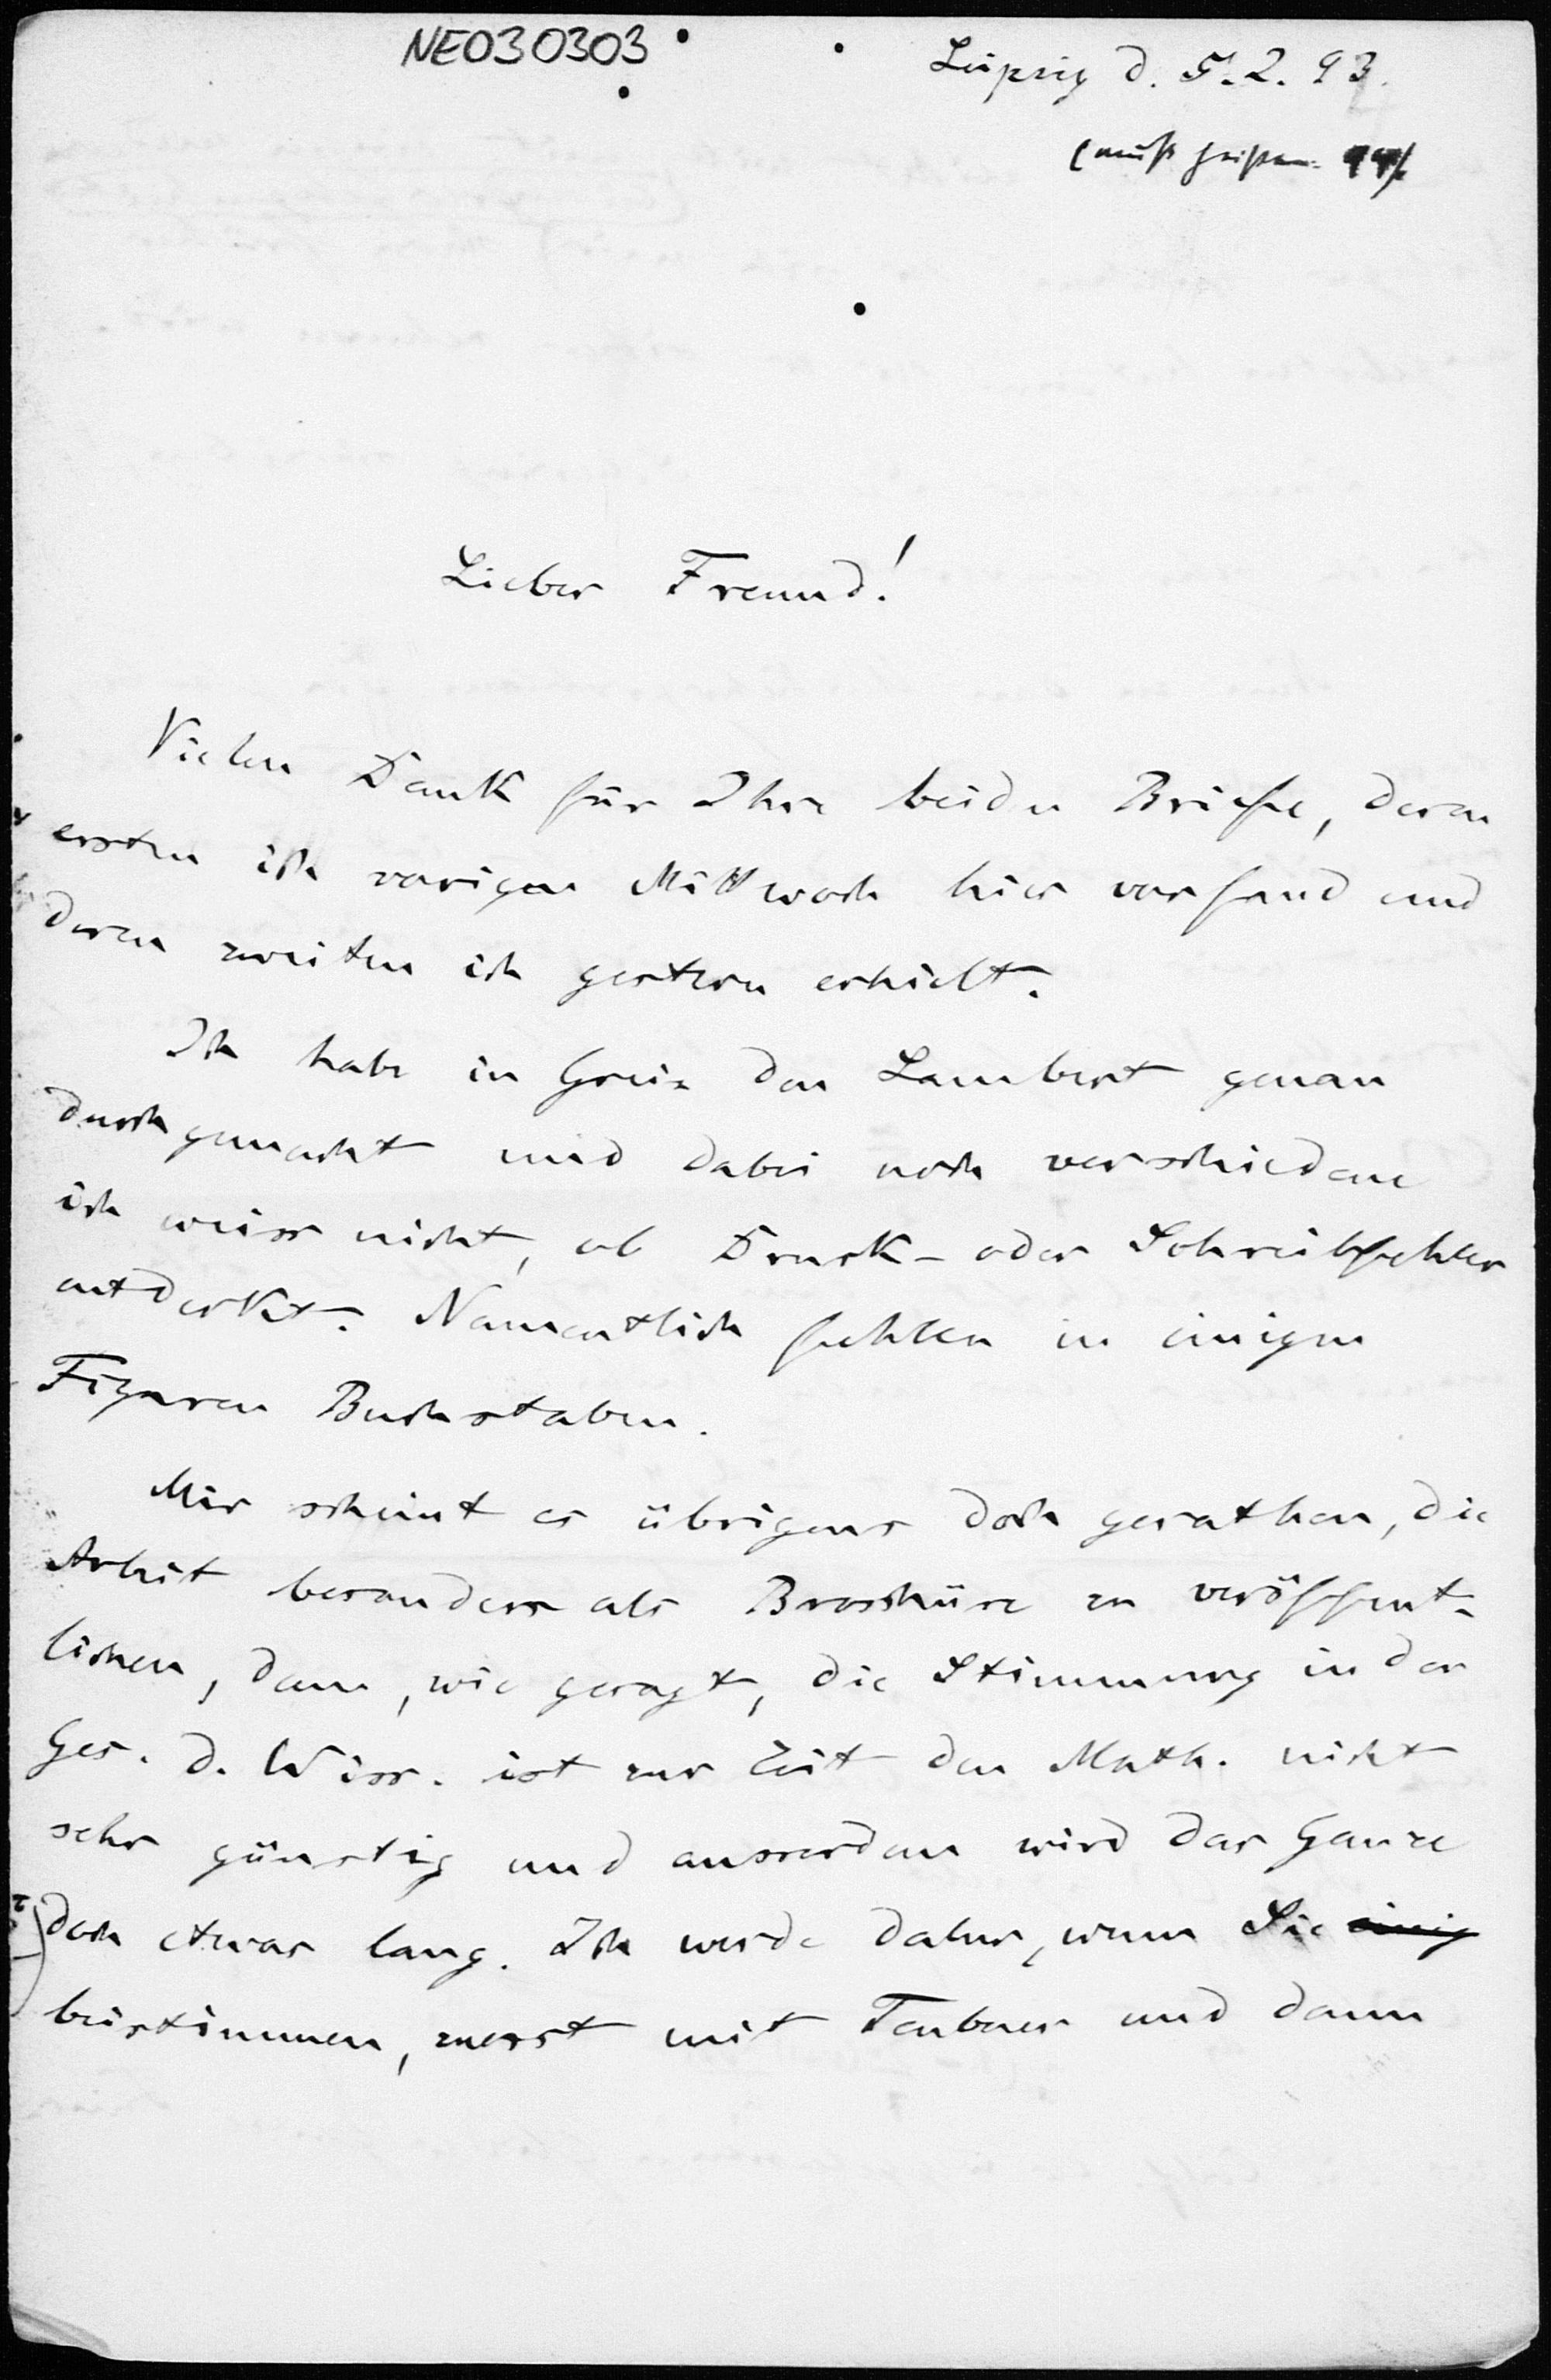 NE030303
Leipzig d. 5. 2. 93.
(muß heißen: 94)
Lieber Freund!
Vielen Dank für Ihre beiden Briefe, deren
ersten ich vorigen Mittwoch hier vorfand und
deren zweiten ich gestern erhielt.
Ich habe in Greiz den Lambert genau
durchgemacht und dabei noch verschiedene
ich weiss nicht, ob Druck- oder Schreibfehler
entdeckt. Namentlich fehlen in einigen
Figuren Buchstaben.
Mir scheint es übrigens doch gerathen, die
Arbeit besonders als Broschüre zu veröffent-
lichen, denn, wie gesagt, die Stimmung in der
Ges. d. Wiss. ist zur Zeit den Math. nicht
sehr günstig und ausserdem wird das Ganze
doch etwas lang. Ich werde daher, wenn Sie einig
beistimmen, zuerst mit Teubner und dann